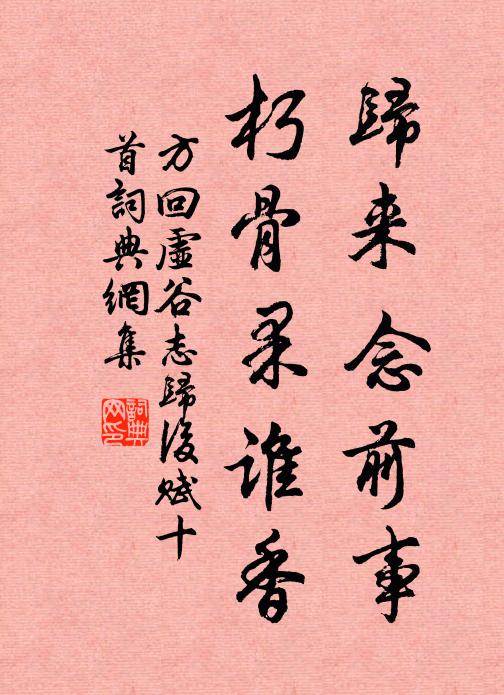 歸来念前事
朽骨果誰香
方回虛谷志歸後賦十
首詞典網集
詞典
网印